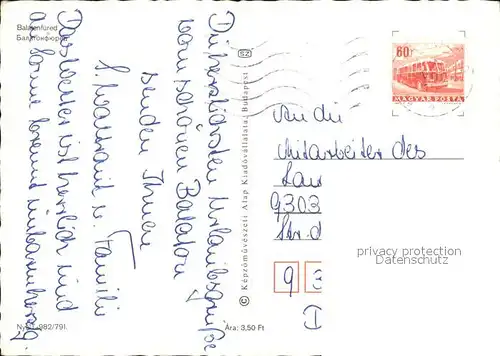 Balatonfüred
Балатонфюред
Die herzlichsten Urlaubsgrüße
vom schönen Balaton
senden Ihnen
S. Waltraut u. Familie
Das Wetter ist herrlich und
die Sonne brennt unbarmherzig.
Nyt.: 982/791.
Ára: 3,50 Ft
© Képzőművészeti Alap Kiadóvállalata, Budapest
SZ
60f
MAGYAR POSTA
An die
Mitarbeiter des
9303
9 3
privacy protection
Datenschutz